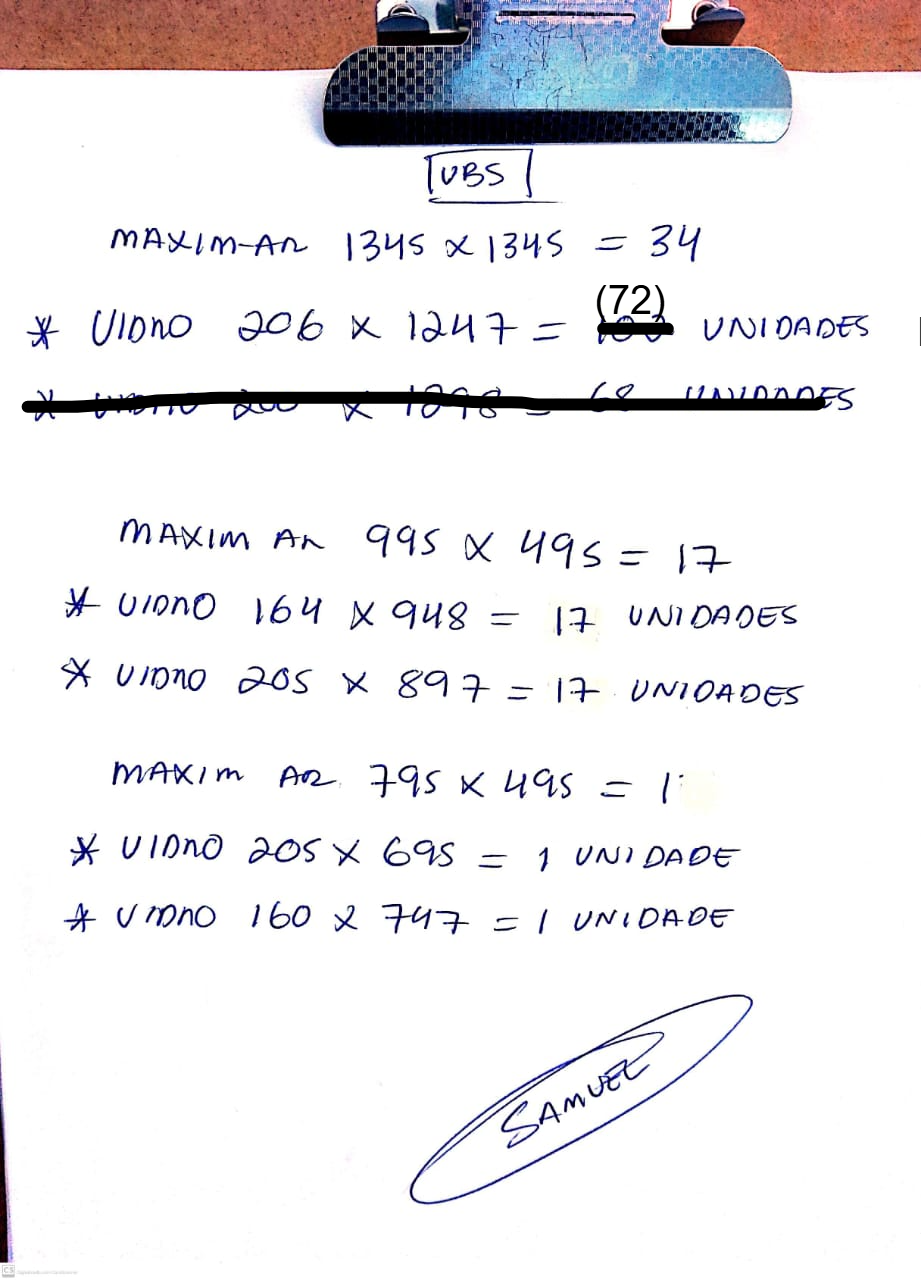 UBS
MAXIM-AR 1345 x 1345 = 34
* VIDRO 206 x 1247 = (72) UNIDADES
MAXIM AR 995 x 495 = 17
* VIDRO 164 x 948 = 17 UNIDADES
* VIDRO 205 x 897 = 17 UNIDADES
MAXIM AR 795 x 495 = 1
* VIDRO 205 x 695 = 1 UNIDADE
* VIDRO 160 x 747 = 1 UNIDADE
SAMUEL
CS